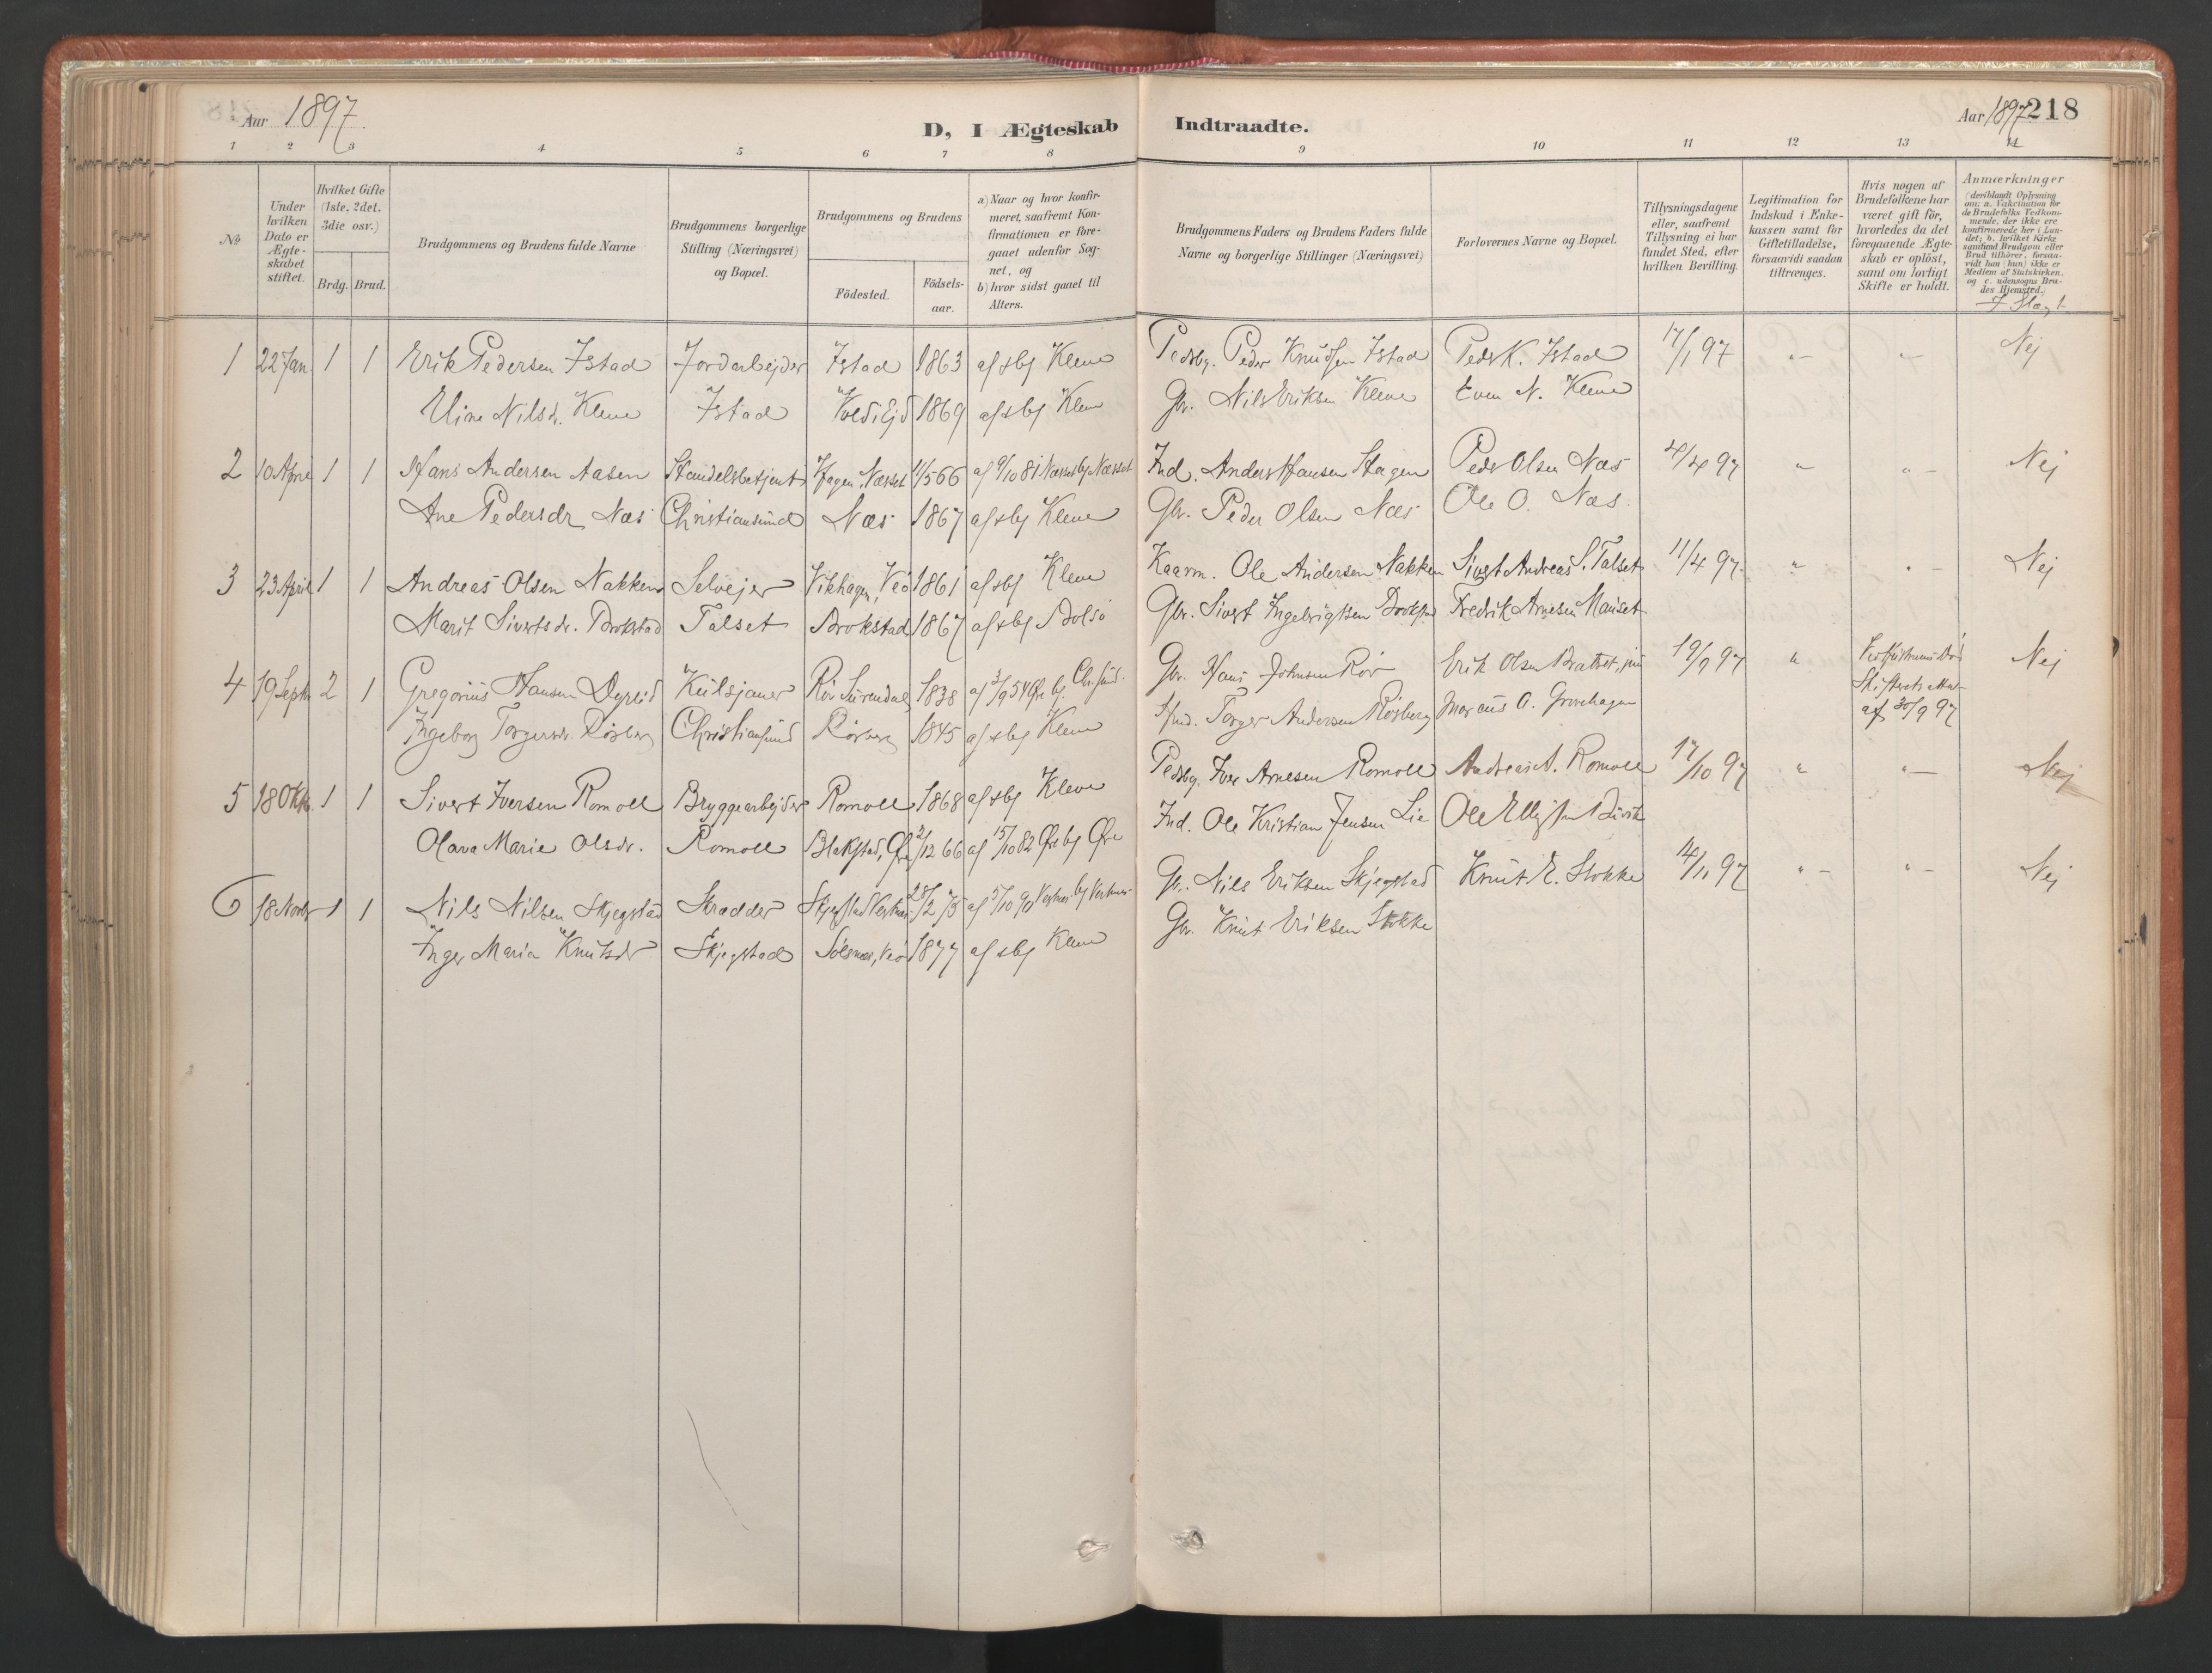 Aar 1897.
D, I Ægteskab Indtraadte.
Aar 1897 218
1 2 3 4 5 6 7 8 9 10 11 12 13 14
No
Under hvilken Dato er Ægteskabet stiftet.
Hvilket Gifte (1ste, 2det, 3die osv.)
Brdg. Brud.
Brudgommens og Brudens fulde Navne
Brudgommens borgerlige Stilling (Næringsvei) og Bopæl.
Brudgommens og Brudens
Födested.
Födsels-aar.
a) Naar og hvor konfirmeret, saafremt Konfirmationen er foregaaet udenfor Sognet, og
b) hvor sidst gaaet til Alters.
Brudgommens Faders og Brudens Faders fulde Navne og borgerlige Stillinger (Næringsvei)
Forlovernes Navne og Bopæl.
Tillysningsdagene eller, saafremt Tillysning ei har fundet Sted, efter hvilken Bevilling.
Legitimation for Indskud i Enkekassen samt for Giftetilladelse, forsaavidt saadan tiltrænges.
Hvis nogen af Brudefolkene har været gift för, hvorledes da det foregaaende Ægteskab er oplöst, samt om lovligt Skifte er holdt.
Anmærkninger
(deriblandt Oplysning om: a. Vakcination for de Brudefolks Vedkommende, der ikke ere konfirmerede her i Landet; b. hvilket Kirkesamfund Brudgom eller Brud tilhörer, forsaavidt han (hun) ikke er Medlem af Statskirken. og c. udensogns Brudes Hjemsted.)
1 22 Jan. 1 1 Erik Pedersen Istad Jordarbejder Istad 1863 af sbg Kleve Pedsbg. Peder Knudsen Istad Peder K. Istad 17/1 97 " - " - Nej
Eline Nilsdr. Kleve Istad 1869 af sbg Kleve Gbr. Nils Eriksen Kleve Even N. Kleve
2 10 April 1 1 Hans Andersen Aasen Handelsbetjent Hagen, Nesset 11/5 66 af 9/10 81 Nesset bg Nesset Ind. Anders Hansen Hagen Peder Olsen Næs 4/4 97 " " - Nej
Ane Pedersdr. Næs Christiansund Næs 1867 af sbg Kleve Gbr. Peder Olsen Næs Ole O. Næs.
3 23 April 1 1 Andreas Olsen Nakken Selvejer Vikhagen, Veö 1861 af sbg Kleve Kaarm. Ole Andersen Nakken Sivert Andreas S. Talset 11/4 97 " " - Nej
Marit Sivertsdr. Brokstad Talset Brokstad 1867 af sbg Bolsö Gbr. Sivert Ingebrigtsen Brokstad Fredrik Arnesen Mauset
4 19 Septbr 2 1 Gregorius Hansen Dyreid Kulsjauer Röv Surendal 1838 af 3/9 54 Öre bg. Ch.sund. Gbr. Hans Johnsen Röv Erik Olsen Brattset, jun 19/9 97 " Ved Hustruens Död Nej
Skifteretsattest af 30/9 97
Ingeborg Torgersdr. Rösberg Christiansund Rösberg 1845 af sbg Kleve Torger Andersen Rösberg Marcus O. Grovehagen
5 18 Oktb. 1 1 Sivert Iversen Romoll Bryggearbejder Romoll 1868 af sbg Kleve Pedsbg. Iver Arnesen Romoll Andreas A. Romoll 17/10 97 " " - Nej
Olava Marie Olsdr. Romoll Blakstad, Öre 2/12 66 af 15/10 82 Öre bg Öre Ind. Ole Kristian Jensen Lie
6 18 Novbr 1 1 Nils Nilsen Skjegstad Skrædder Skjegstad Vestnes 28/2 75 af 5/10 90 Vestnes bg Vestnes Gbr. Nils Eriksen Skjegstad Knut E. Stokke 14/11 97 " - " - Nej
Inger Maria Knutsdr Skjegstad Sölsnes, Veö 1877 af sbg Kleve Gbr. Knut Eriksen Stokke